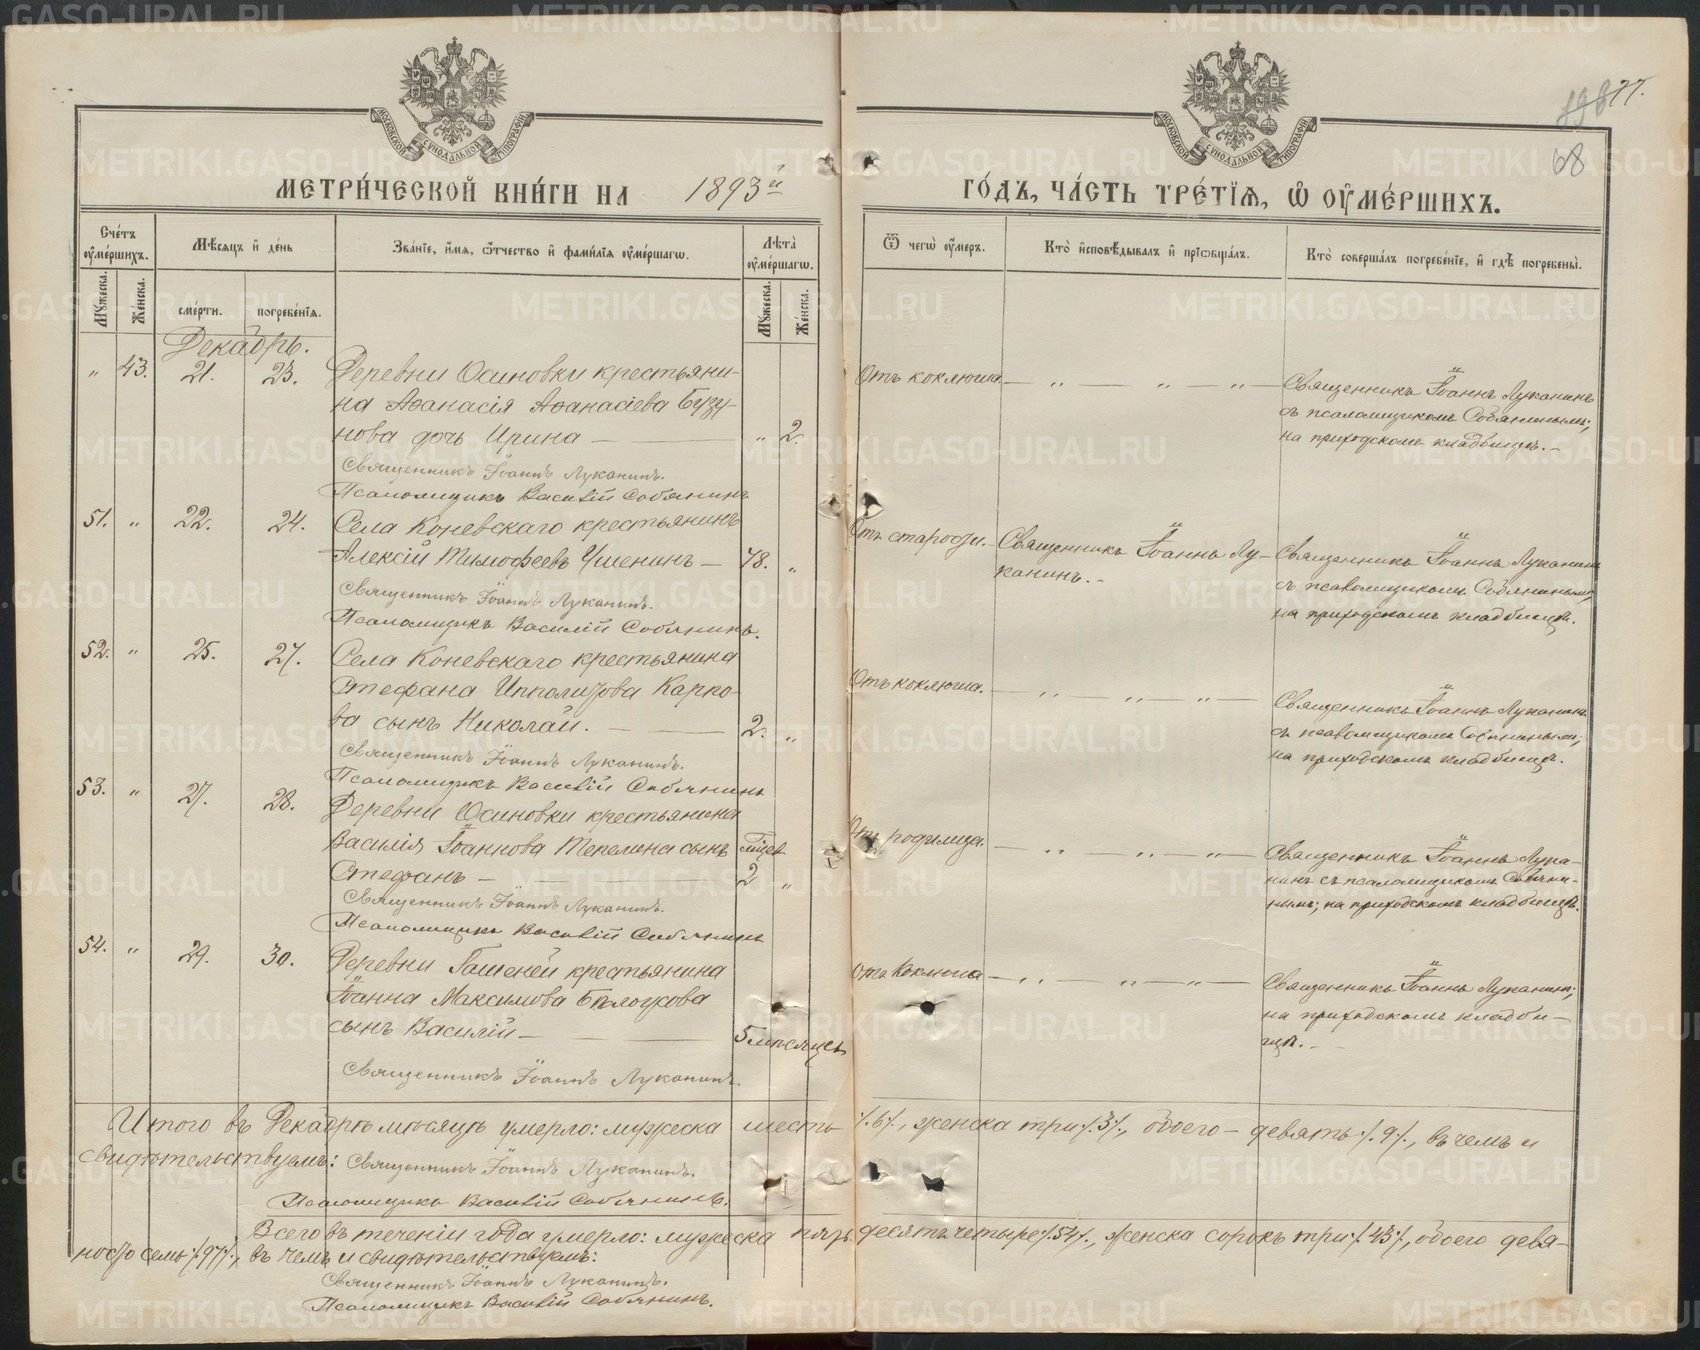 МЕТРИ́ЧЕСКОЙ КНИ́ГИ НА 1893й
ГО́ДЪ, ЧА́СТЬ ТРЕ́ТIѦ, Ѽ ОУ҆МЕ́РШИХЪ.
77.
68
Сче́тъ оу҆ме́ршихъ.
Мѣ́сяцъ и҆ де́нь
Зва́нїе, и҆́мѧ, ѻ҆́тчество и҆ фами́лїѧ оу҆ме́ршагѡ.
Лѣ́та оу҆ме́ршагѡ.
Ѿ чегѡ̀ оу҆́меръ.
Кто̀ и҆сповѣ́дывалъ и҆ прїѡбща́лъ.
Кто̀ соверша́лъ погребе́нїе, и҆ гдѣ̀ погребены̀.
Мꙋ́жеска.
Же́нска.
сме́рти.
погребе́нїѧ.
Мꙋ́жеска.
Же́нска.
Декабрь.
" 43. 21. 23. Деревни Осиновки крестьяни-
на Аѳанасія Аѳанасіева Бузу-
нова дочь Ирина — " 2.
Священникъ Іоаннъ Луканинъ.
Псаломщикъ Василій Собянинъ
Отъ коклюша — " — " — " —
Священникъ Іоаннъ Луканинъ
съ псаломщикомъ Собянинымъ;
на приходскомъ кладбищѣ. —
51. " 22. 24. Села Коневскаго крестьянинъ
Алексій Тимофеевъ Ушенинъ — 78. "
Священникъ Іоаннъ Луканинъ.
Псаломщикъ Василій Собянинъ.
Отъ старости. — Священникъ Іоаннъ Лу-
канинъ. -
Священникъ Іоаннъ Луканинъ
съ псаломщикомъ Собянинымъ;
на приходскомъ кладбищѣ.
52. " 25. 27. Села Коневскаго крестьянина
Стефана Ипполитова Карпо-
ва сынъ Николай. — 2. "
Священникъ Іоаннъ Луканинъ.
Псаломщикъ Василій Собянинъ
Отъ коклюша. — " — " — " —
Священникъ Іоаннъ Луканинъ
съ псаломщикомъ Собянинымъ;
на приходскомъ кладбищѣ.
53. " 27. 28. Деревни Осиновки крестьянина
Василія Іоаннова Тепелина сынъ
Стефанъ — 2 "
Священникъ Іоаннъ Луканинъ.
Псаломщикъ Василій Собянинъ
Отъ родимца. — " — " — " —
Священникъ Іоаннъ Лука-
нинъ съ псаломщикомъ Собяни-
нымъ; на приходскомъ кладбищѣ.
54. " 29. 30. Деревни Гашеней крестьянина
Іоанна Максимова Бѣлоусова
сынъ Василій — 5 мѣсяцевъ
Священникъ Іоаннъ Луканинъ
Отъ коклюша — " — " — " —
Священникъ Іоаннъ Луканинъ;
на приходскомъ кладби-
щѣ. —
Итого въ Декабрѣ мѣсяцѣ умерло: мужеска шесть /.6/., женска три /.3/., обоего — девять /.9/., въ чемъ и
свидѣтельствуемъ: Священникъ Іоаннъ Луканинъ.
Псаломщикъ Василій Собянинъ.
Всего въ теченіи года умерло: мужеска пятьдесятъ четыре /.54/., женска сорокъ три /.43/., обоего девя-
носто семь /.97/., въ чемъ и свидѣтельствуемъ:
Священникъ Іоаннъ Луканинъ.
Псаломщикъ Василій Собянинъ.